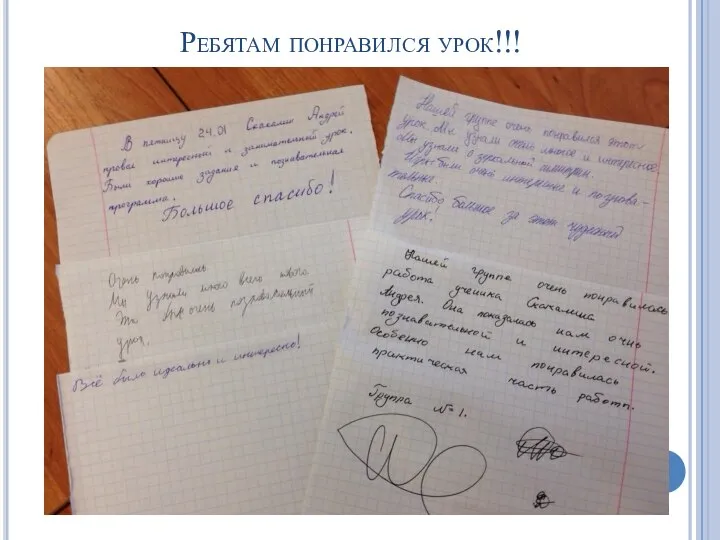 Ребятам понравился урок!!!
В пятницу 24.01 Скакалин Андрей
провел интересный и занимательный урок.
Были хорошие задания и познавательная
программа.
Большое спасибо!
Нашей группе очень понравился этот
урок. Мы узнали много нового и интересного.
Мы узнали о зеркальной симметрии.
было очень интересно и познава-
тельно.
Спасибо большое за этот чудесный
урок!
Очень понравилось.
Мы узнали много всего нового
Это был очень познавательный
урок.
Всё было идеально и интересно!
Нашей группе очень понравилась
работа ученика Скакалина
Андрея. Она показалась нам очень
познавательной и интересной.
Особенно нам понравилась
практическая часть работы.
Группа №1.